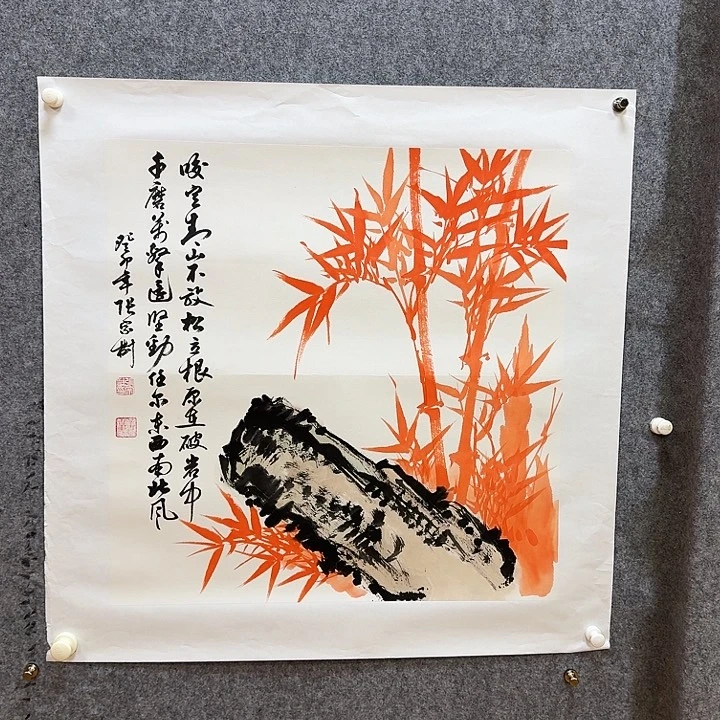 咬定青山不放松立根原在破岩中
千磨萬擊還坚劲任尔东西南北风
癸卯年张家树